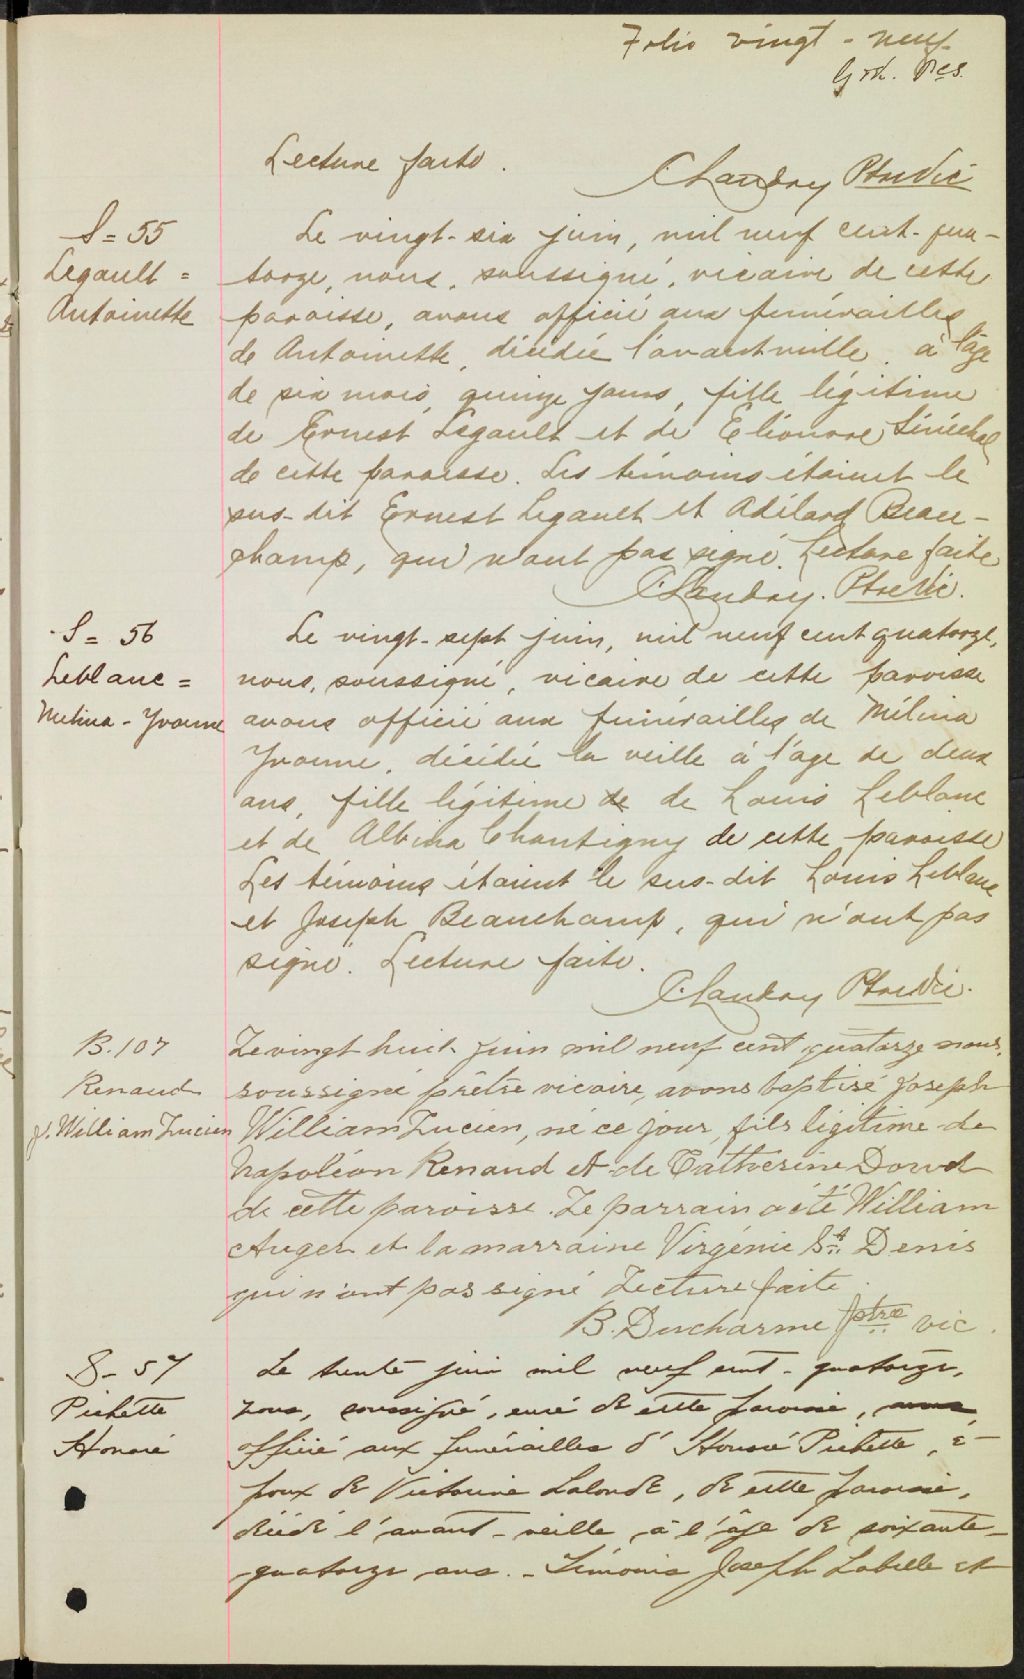 Folio vingt-neuf
Lecture faite.
C. Landry Ptre Vic
S = 55
Legault =
Antoinette
Le vingt-six juin, mil neuf cent-qua-
torze, nous, soussigné, vicaire de cette
paroisse, avons officié aux funérailles
de Antoinette, décédée l'avant veille, à l'âge
de six mois, quinze jours, fille légitime
de Ernest Legault et de Eléonore Sénéchal
de cette paroisse. Les témoins étaient le
sus-dit Ernest Legault et Adélard Beau-
champ, qui n'ont pas signé. Lecture faite
C. Landry. Ptre Vic.
S = 56
Leblanc =
Melina-Yvonne
Le vingt-sept juin, mil neuf cent quatorze,
nous, soussigné, vicaire de cette paroisse
avons officié aux funérailles de Mélina
Yvonne, décédée la veille à l'âge de deux
ans, fille légitime de de Louis Leblanc
et de Albina Chantigny de cette paroisse
Les témoins étaient le sus-dit Louis Leblanc
et Joseph Beauchamp, qui n'ont pas
signé. Lecture faite.
C. Landry Ptre Vic.
B. 107
Renaud
J. William Lucien
Le vingt huit juin mil neuf cent quatorze nous,
soussigné prêtre vicaire, avons baptisé Joseph
William Lucien, né ce jour, fils légitime de
Napoléon Renaud et de Cathérine Dowd
de cette paroisse. Le parrain a été William
Auger et la marraine Virgénie St. Denis
qui n'ont pas signé Lecture faite.
B. Ducharme ptre vic.
S - 57
Pichette
Honoré
Le trente juin mil neuf cent-quatorze,
nous, soussigné, curé de cette paroisse, avons
officié aux funérailles d'Honoré Pichette, é-
poux de Victorine Lalonde, de cette paroisse,
décédé l'avant-veille à l'âge de soixante-
quatorze ans. - Témoins Joseph Labelle et